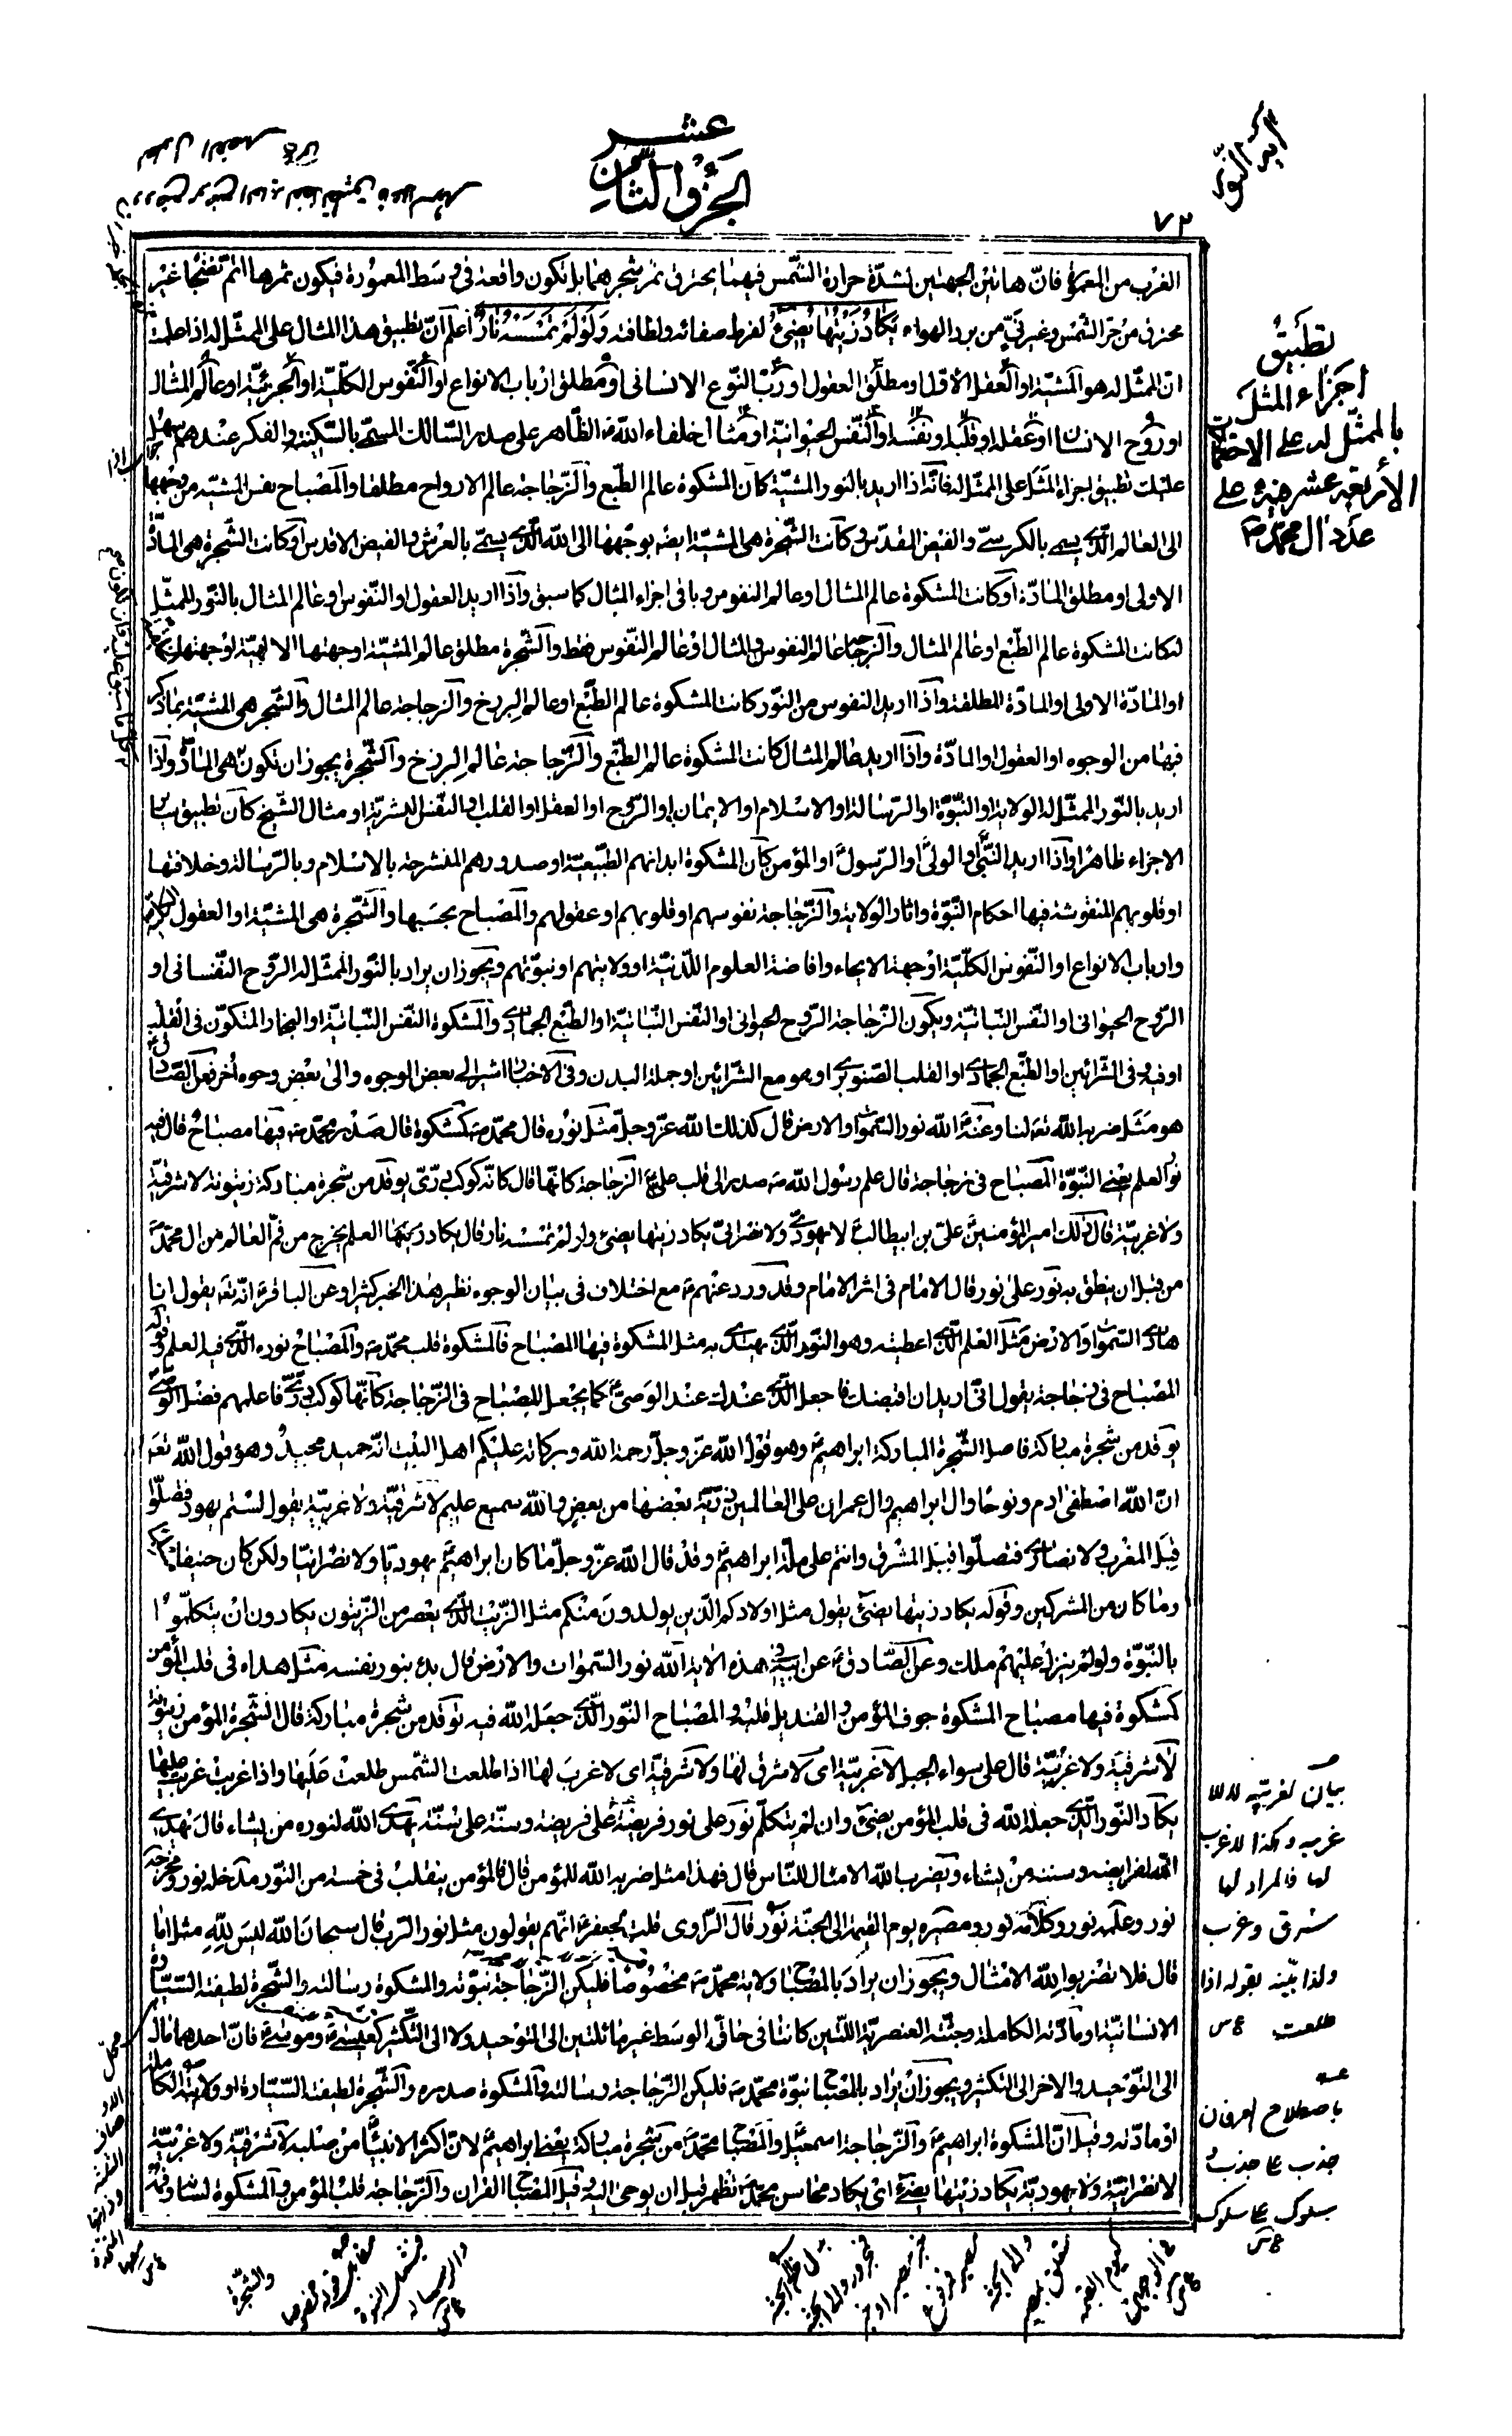 آية النّور
الجزؤ الثّامن عشر
٧٢
الغرب من المعمورة فانّ هاتين الجهتين لشدّة حرارة الشّمس فيهما يحترق ثمر شجرهما بل تكون واقعة فى وسط المعمورة فيكون ثمرها اتم نضجا غير
محترق من حرّ الشّمس وغير نىّ من برد الهواء يَكادُ زَيْتُها يُضِيءُ لفرط صفائه ولطافته وَلَوْ لَمْ تَمْسَسْهُ نارٌ اعلم انّ تطبيق هذا المثال على الممثّل له اذا علمت
انّ الممثّل له هو المشيّة او العقل الأوّل او مطلق العقول او ربّ النّوع الانسانى او مطلق ارباب الانواع او النّفوس الكلّيّة او الجزئيّة او عالم المثال
او روح الانسان او عقله او قلبه او نفسه او النّفس الحيوانيّة او مثال خلفاء الله الظّاهر على صدر السّالك المسمّى بالسّكينة والفكر عندهم سهل
عليك تطبيق اجزاء المثَل على الممثّل له فانّه اذا اريد بالنور المشيّة كان المشكوة عالم الطّبع والزّجاجة عالم الارواح مطلقا والمصباح نفس المشيّة من وجهها
الى العالم الّذى يسمى بالكرسىّ والفيض المقدّس وكانت الشّجرة هى المشيّة ايضا بوجهها الى الله الّذى يسمّى بالعرش والفيض الاقدس او كانت الشّجرة هى المادّة
الاولى او مطلق المادّة او كانت المشكوة عالم المثال او عالم النفوس وباقى اجزاء المثال كما سبق واذا اريد العقول او النّفوس او عالم المثال بالنّور الممثّل
لكانت المشكوة عالم الطّبع او عالم المثال والزجاجة عالم النفوس والمثال او عالم النّفوس فقط والشّجرة مطلق عالم المشيّة او جهتها الالهيّة او جهتها
او المادّة الاولى والمادّة المطلقة واذا اريد النفوس من النّور كانت المشكوة عالم الطّبع او عالم البرزخ والزجاجة عالم المثال والشّجر هى المشيّة بما ذكر
فيها من الوجوه او العقول او المادّة واذا اريد عالم المثال كانت المشكوة عالم الطّبع والزّجاجة عالم البرزخ والشّجرة يجوز ان تكون هى المادّة واذا
اريد بالنّور الممثّل له الولاية او النّبوّة او الرّسالة او الاسلام او الايمان او الرّوح او العقل او القلب او النّفس البشريّة او مثال الشّيخ كان تطبيق
الاجزاء ظاهرا واذا اريد النّبىّ او الولىّ او الرّسول او المؤمن كان المشكوة ابدانهم الطّبيعيّة او صدورهم المنشرحة بالاسلام وبالرّسالة وخلافتها
او قلوبهم المنقوشة فيها احكام النّبوّة واثار الولاية والزّجاجة نفوسهم او قلوبهم او عقولهم والمصباح بحسبها والشّجرة هى المشيّة او العقول الكلّيّة
وارباب الانواع او النّفوس الكلّيّة او جهة الايحاء وافاضة العلوم اللّدنيّة او ولايتهم او نبوّتهم ويجوز ان يراد بالنّور الممثّل له الرّوح النّفسانى او
الرّوح الحيوانى او النّفس النّباتيّة ويكون الزّجاجة الرّوح الحيوانى او النّفس النّباتيّة او الطّبع الجمادىّ والمشكوة النّفس النّباتيّة او البخار المتكوّن فى القلب
او فيه وفى الشّرائين او الطّبع الجمادى او القلب الصّنوبرى او هو مع الشّرائين او جملة البدن وفى الاخبار اشير الى بعض الوجوه والى بعض وجوه أخر فعن الصّادق
هو مَثَل ضربه الله تعالى لنا وعنه الله نور السّموات والارض قال كذلك الله عزّ وجلّ مَثَل نُوره قال محمّد كمشكوة قال صَدر محمّد فيها مصباح قال فيه
نور العلم يعنى النّبوّة المصباح فى زجاجة قال علم رسول الله صدر الى قلب علىّ الزّجاجة كانّها قال كانّه كوكب درّىّ يوقد من شجرة مباركة زيتونة لا شرقيّة
ولا غربيّة قال ذلك امير المؤمنين علىّ بن ابيطالب لا يهودىّ ولا نصرانىّ يكاد زيتها يضىء ولو لم تمسسه نار قال يكاد العلم يخرج من فم العالم من ال محمّد
من قبل ان ينطق به نور على نور قال الامام فى اثر الامام وقد ورد عنهم مع اختلاف فى بيان الوجوه نظير هذا الخبر كثيرا وعن الباقر انّه تعالى يقول انا
هادى السّموات والارض مَثَل العلم الّذى اعطيته وهو النّور الّذى يهتدى به مثل المشكوة فيها المصباح فالمشكوة قلب محمّد والمصباح نوره الّذى فيه العلم وقوله
المصباح فى زجاجة يقول انّى اريد ان اقبضك فاجعل الّذى عندك عند الوصىّ كما يجعل المصباح فى الزّجاجة كانّها كوكب درّىّ فاعلمهم فضل الوصىّ
يوقد من شجرة مباركة فاصل الشّجرة المباركة ابراهيم وهو قول الله عزّ وجلّ رحمة الله وبركاته عليكم اهل البيت انّه حميد مجيد وهو قول الله تعالى
انّ الله اصطفى ادم ونوحا وال ابراهيم وال عمران على العالمين ذرّيّة بعضها من بعض والله سميع عليم لا شرقيّة ولا غربيّة يقول لستم بيهود فتصلّوا
قبل المغرب ولا نصارى فتصلّوا قبل المشرق وانتم على ملّة ابراهيم وقد قال الله عزّ وجلّ ما كان ابراهيم يهوديّا ولا نصرانيّا ولكن كان حنيفا مسلما
وما كان من المشركين وقوله يكاد زيتها يضىء يقول مثل اولادكم الّذين يولدون منكم مثل الزّيت الّذى يعصر من الزّيتون يكادون ان يتكلّموا
بالنّبوّة ولو لم ينزل عليهم ملك وعن الصّادق عن ابيه فى هذه الاية الله نور السّموات والارض قال بدء بنور نفسه مثل هداه فى قلب المؤمن
كمشكوة فيها مصباح المشكوة جوف المؤمن والقنديل قلبه والمصباح النّور الّذى جعله الله فيه توقد من شجرة مباركة قال الشّجرة المؤمن زيتونة
لا شرقيّة ولا غربيّة قال على سواء الجبل لا غربيّة اى لا شرق لها ولا شرقيّة اى لا غرب لها اذا طلعت الشّمس طلعت عليها واذا غربت غربت عليها
يكاد النّور الّذى جعله الله فى قلب المؤمن يضىء وان لم يتكلّم نور على نور فريضة على فريضة وسنّة على سنّة يهدى الله لنوره من يشاء قال يهدى
الله لفرايضه وسننه من يشاء ويضرب الله الامثال للنّاس قال فهذا مثل ضربه الله للمؤمن قال فالمؤمن ينقلب فى خمسة من النّور مدخله نور ومخرجه
نور وعلمه نور وكلامه نور ومصيره يوم القيمة الى الجنّة نور قال الرّاوى قلت لجعفر انّهم يقولون مثل نور الرّب قال سبحان الله ليس لله مثل اما
قال فلا تضربوا لله الامثال ويجوز ان يراد بالمصباح ولاية محمّد مخصوصا فليكن الزّجاجة نبوّته والمشكوة رسالته والشّجرة لطيفته السّيّارة
الانسانيّة او مادّته الكاملة وجثّته العنصريّة اللّتين كانتا فى حاقّ الوسط غير مائلتين الى التوحيد ولا الى التّكثّر كعيسى وموسى فانّ احدهما مال
الى التّوحيد والاخر الى التكثر ويجوز ان يراد بالمصباح نبوّة محمّد فليكن الزّجاجة رسالته والمشكوة صدره والشّجرة لطيفته السّيّارة او ولايته الكاملة
او مادّته وقيل انّ المشكوة ابراهيم والزّجاجة اسمعيل والمصباح محمّد من شجرة مباركة يعنى ابراهيم لانّ اكثر الانبياء من صلبه لا شرقيّة ولا غربيّة
لا نصرانيّة ولا يهوديّة يكاد زيتها يضىء اى يكاد محاسن محمّد تظهر قبل ان يوحى اليه وقيل المصباح القران والزّجاجة قلب المؤمن والمشكوة لسانه وفمه
والشّجرة
تطبيق
اجزاء المثل
بالممثّل له على الاحتمالات
الأربعة عشر على
عدد ال محمّد
بيان لغربيّة
لها فالمراد لها
شرق وغرب
ولذا بيّنه بقوله اذا
طلعت
باصطلاح العرفان